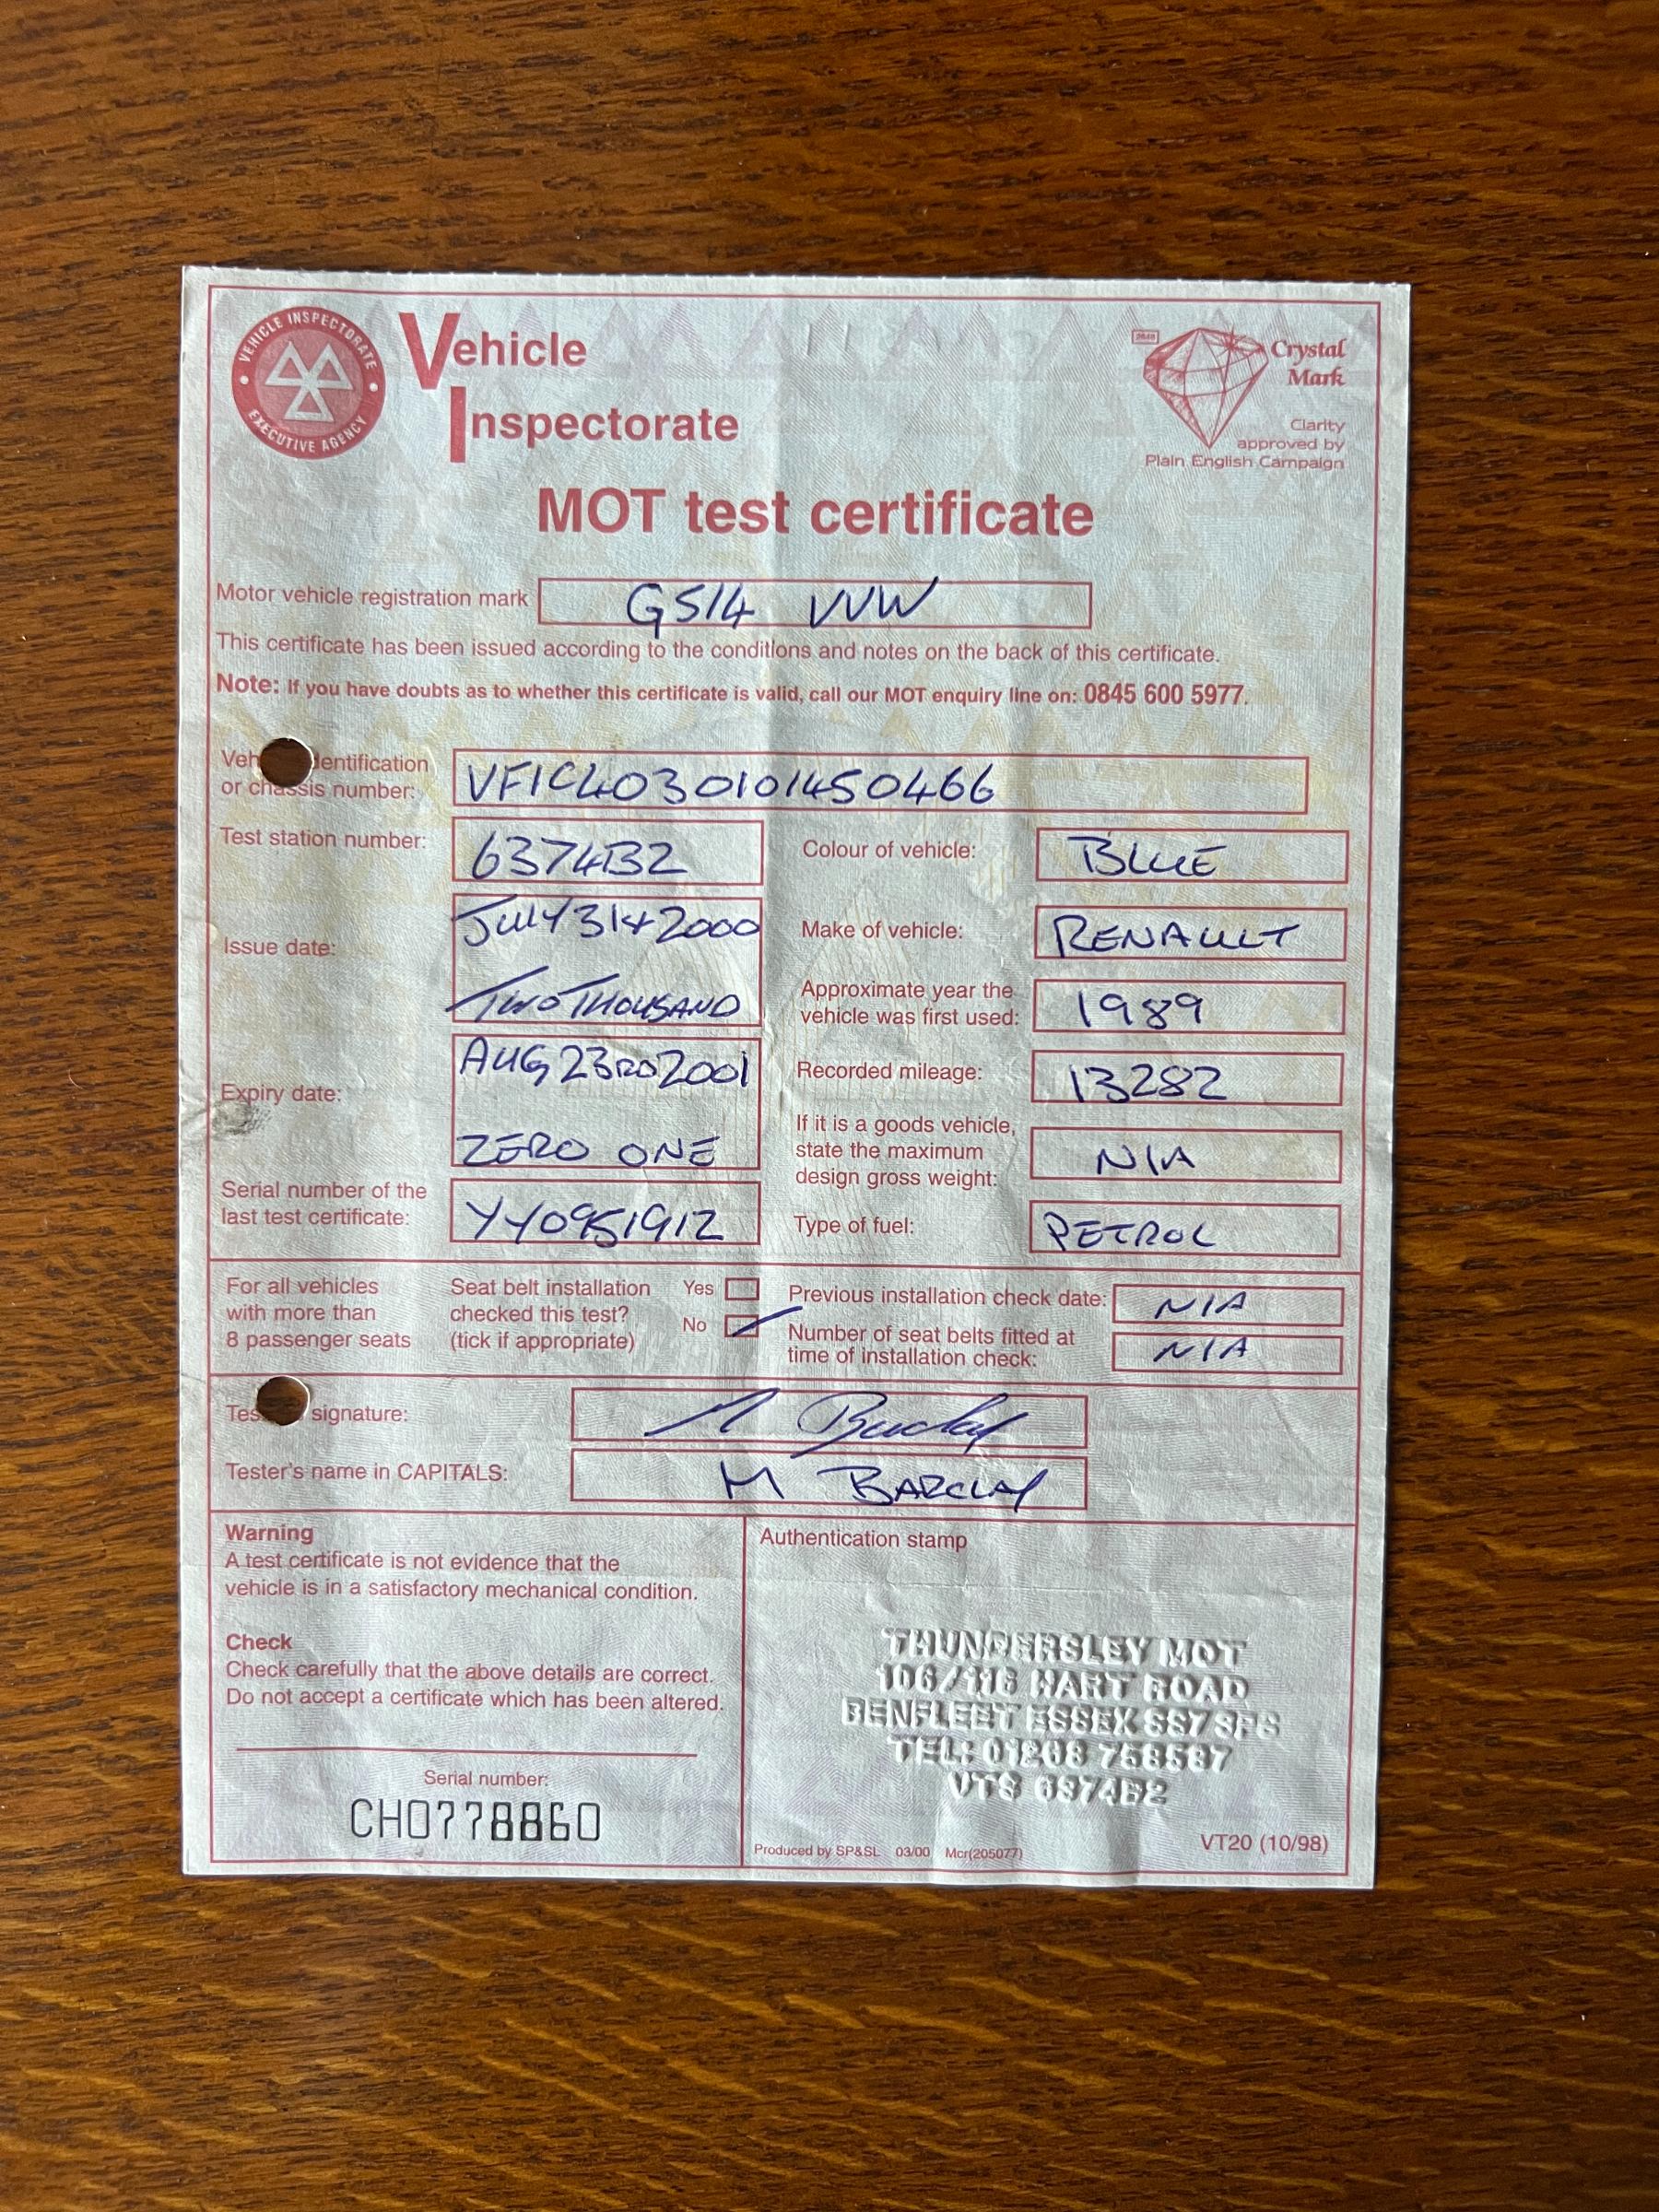 VEHICLE INSPECTORATE
EXECUTIVE AGENCY
Vehicle
Inspectorate
Crystal
Mark
Clarity
approved by
Plain English Campaign
MOT test certificate
Motor vehicle registration mark G514 VVW
This certificate has been issued according to the conditions and notes on the back of this certificate.
Note: If you have doubts as to whether this certificate is valid, call our MOT enquiry line on: 0845 600 5977.
entification
or chassis number: VF1C4030101450466
Test station number: 6374B2
Colour of vehicle: BLUE
Issue date: JULY 31st 2000
TWO THOUSAND
Make of vehicle: RENAULT
Approximate year the
vehicle was first used: 1989
Expiry date: AUG 23RD 2001
ZERO ONE
Recorded mileage: 13282
If it is a goods vehicle,
state the maximum
design gross weight: N/A
Serial number of the
last test certificate: YY0951912
Type of fuel: PETROL
For all vehicles
with more than
8 passenger seats
Seat belt installation
checked this test?
(tick if appropriate)
Yes
No
Previous installation check date: N/A
Number of seat belts fitted at
time of installation check: N/A
signature:
Tester's name in CAPITALS: M BARCLAY
Warning
A test certificate is not evidence that the
vehicle is in a satisfactory mechanical condition.
Check
Check carefully that the above details are correct.
Do not accept a certificate which has been altered.
Serial number:
CH0778860
Authentication stamp
THUNDERSLEY MOT
106/116 HART ROAD
BENFLEET ESSEX SS7
TEL:
VTS 6374B2
Produced by SP&SL 03/00 Mcr(205077)
VT20 (10/98)